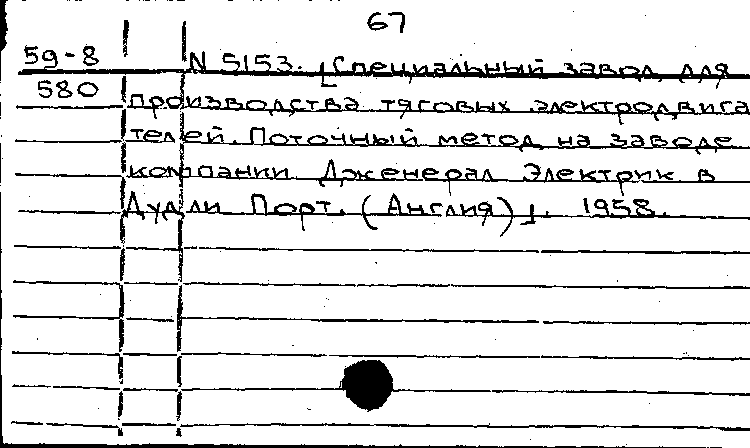 67
59-8 N 5153. [Специальный завод для
580 производства тяговых электродвига
телей. Поточный метод на заводе
компании Дженерал Электрик в
Дудли Порт. (Англия)]. 1958.